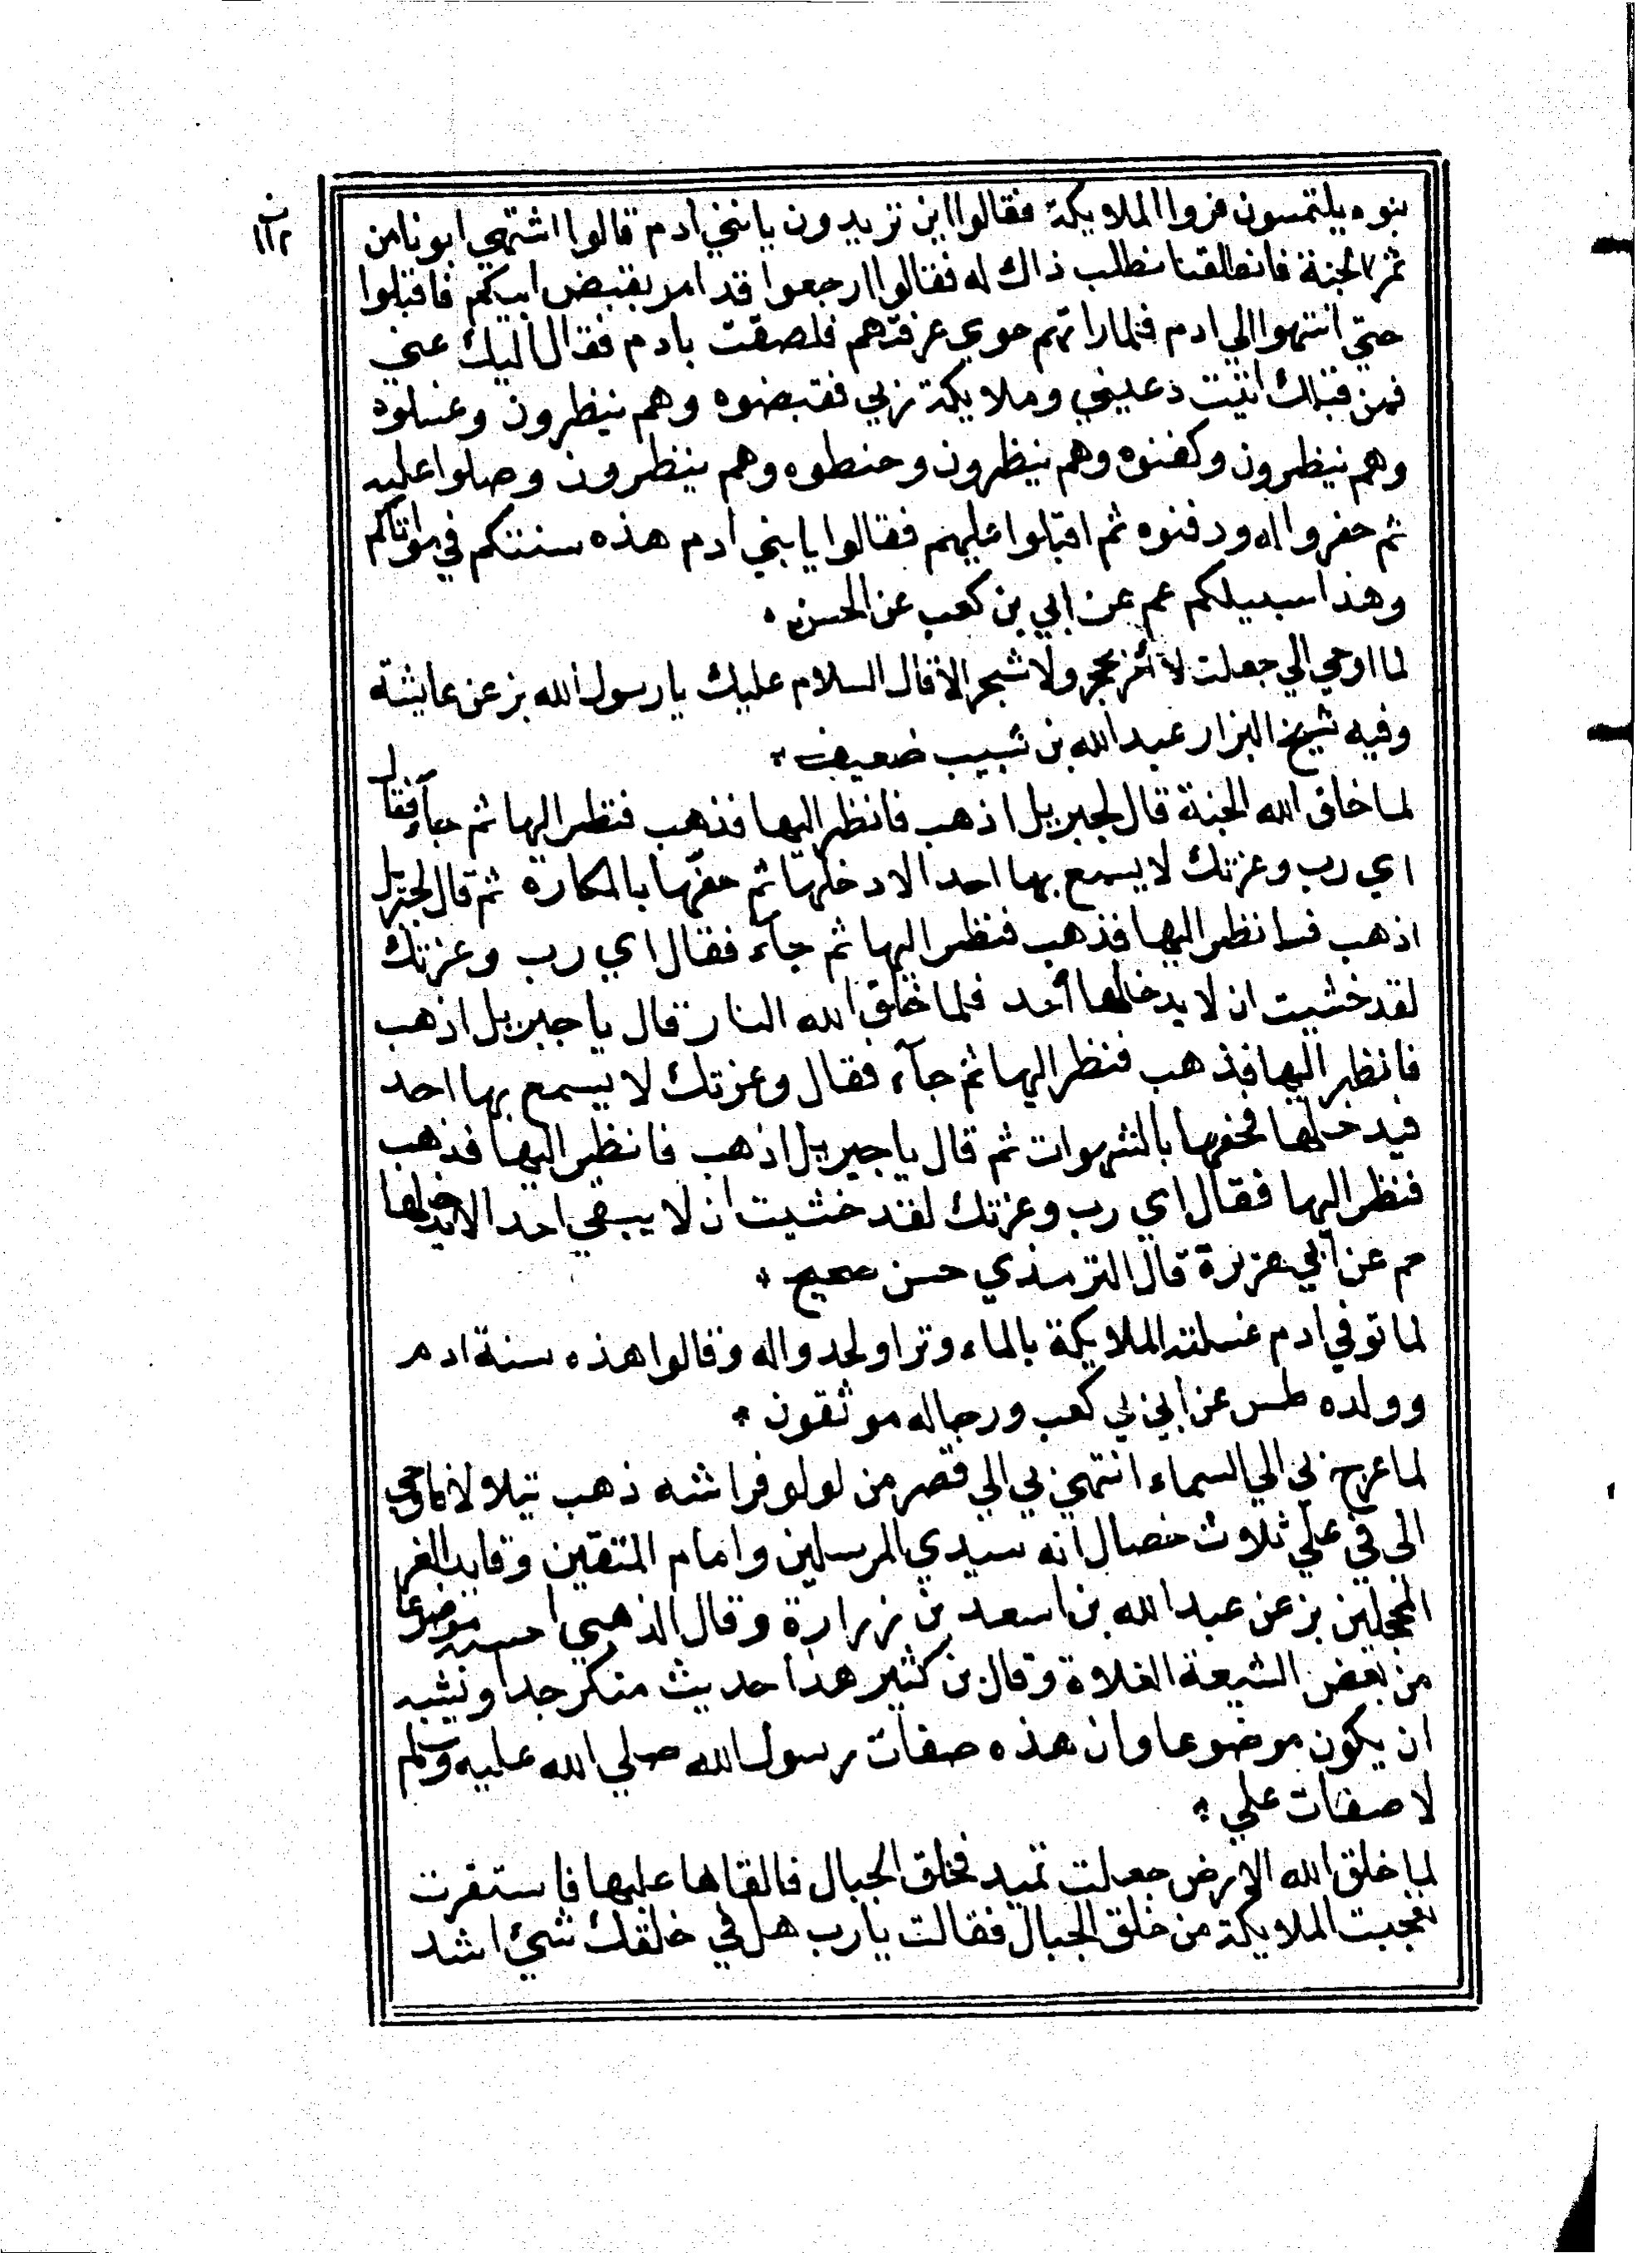 بنوه يلتمسون فروا الملايكة فقالوا اين تريدون يا بني ادم قالوا اشتهي ابونا من
ثمر الجنة فانطلقنا نطلب ذاك له فقالوا ارجعوا قد امر بقبض ابيكم فاقبلوا
حتي انتهوا الي ادم فلما راتهم حوي عرفتهم فلصقت بادم فقال اليك عني
فمن قبلك اتيت دعيني وملايكة ربي فقبضوه وهم ينظرون وغسلوه
وهم ينظرون وكفنوه وهم ينظرون وحنطوه وهم ينظرون وصلوا عليه
ثم حفروا له ودفنوه ثم اقبلوا عليهم فقالوا يا بني ادم هذه سنتكم في موتاكم
وهذا سبيلكم عم عن ابي بن كعب عن الحسن
لما اوحي الي جعلت لا امر بحجر ولا شجر الا قال السلام عليك يا رسول الله بز عن عايشة
وفيه شيخ البزار عبد الله بن شبيب ضعيف
لما خلق الله الجنة قال لجبريل اذهب فانظر اليها فذهب فنظر اليها ثم جاء فقال
اي رب وعزتك لا يسمع بها احد الا دخلها ثم حفها بالمكاره ثم قال لجبريل
اذهب فانظر اليها فذهب فنظر اليها ثم جآء فقال اي رب وعزتك
لقد خشيت ان لا يدخلها أحد فلما خلق الله النار قال يا جبريل اذهب
فانظر اليها فذهب فنظر اليها ثم جآء فقال وعزتك لا يسمع بها احد
فيدخلها فحفها بالشهوات ثم قال يا جبريل اذهب فانظر اليها فذهب
فنظر اليها فقال اي رب وعزتك لقد خشيت ان لا يبقي احد الا يدخلها
حم عن ابي هريرة قال الترمذي حسن صحيح
لما توفي ادم غسلته الملايكة بالماء وترا ولحدوا له وقالوا هذه سنة ادم
وولده طس عن ابي بن كعب ورجاله موثقون
لما عرج بي الي السماء انتهي بي الي قصر من لولو فراشه ذهب يتلالا فاوحي
الي في علي ثلاث خصال انه سيدي المرسلين وامام المتقين وقايد الغر
المحجلين بز عن عبد الله بن اسعد بن زرارة وقال الذهبي احسبه موضوعا
من بعض الشيعة الغلاة وقال بن كثير هذا حديث منكر جدا ويشبه
ان يكون موضوعا وان هذه صفات رسول الله صلي الله عليه وسلم
لا صفات علي
لما خلق الله الارض جعلت تميد فخلق الجبال فالقاها عليها فاستقرت
فعجبت الملايكة من خلق الجبال فقالت يا رب هل في خلقك شيئ اشد